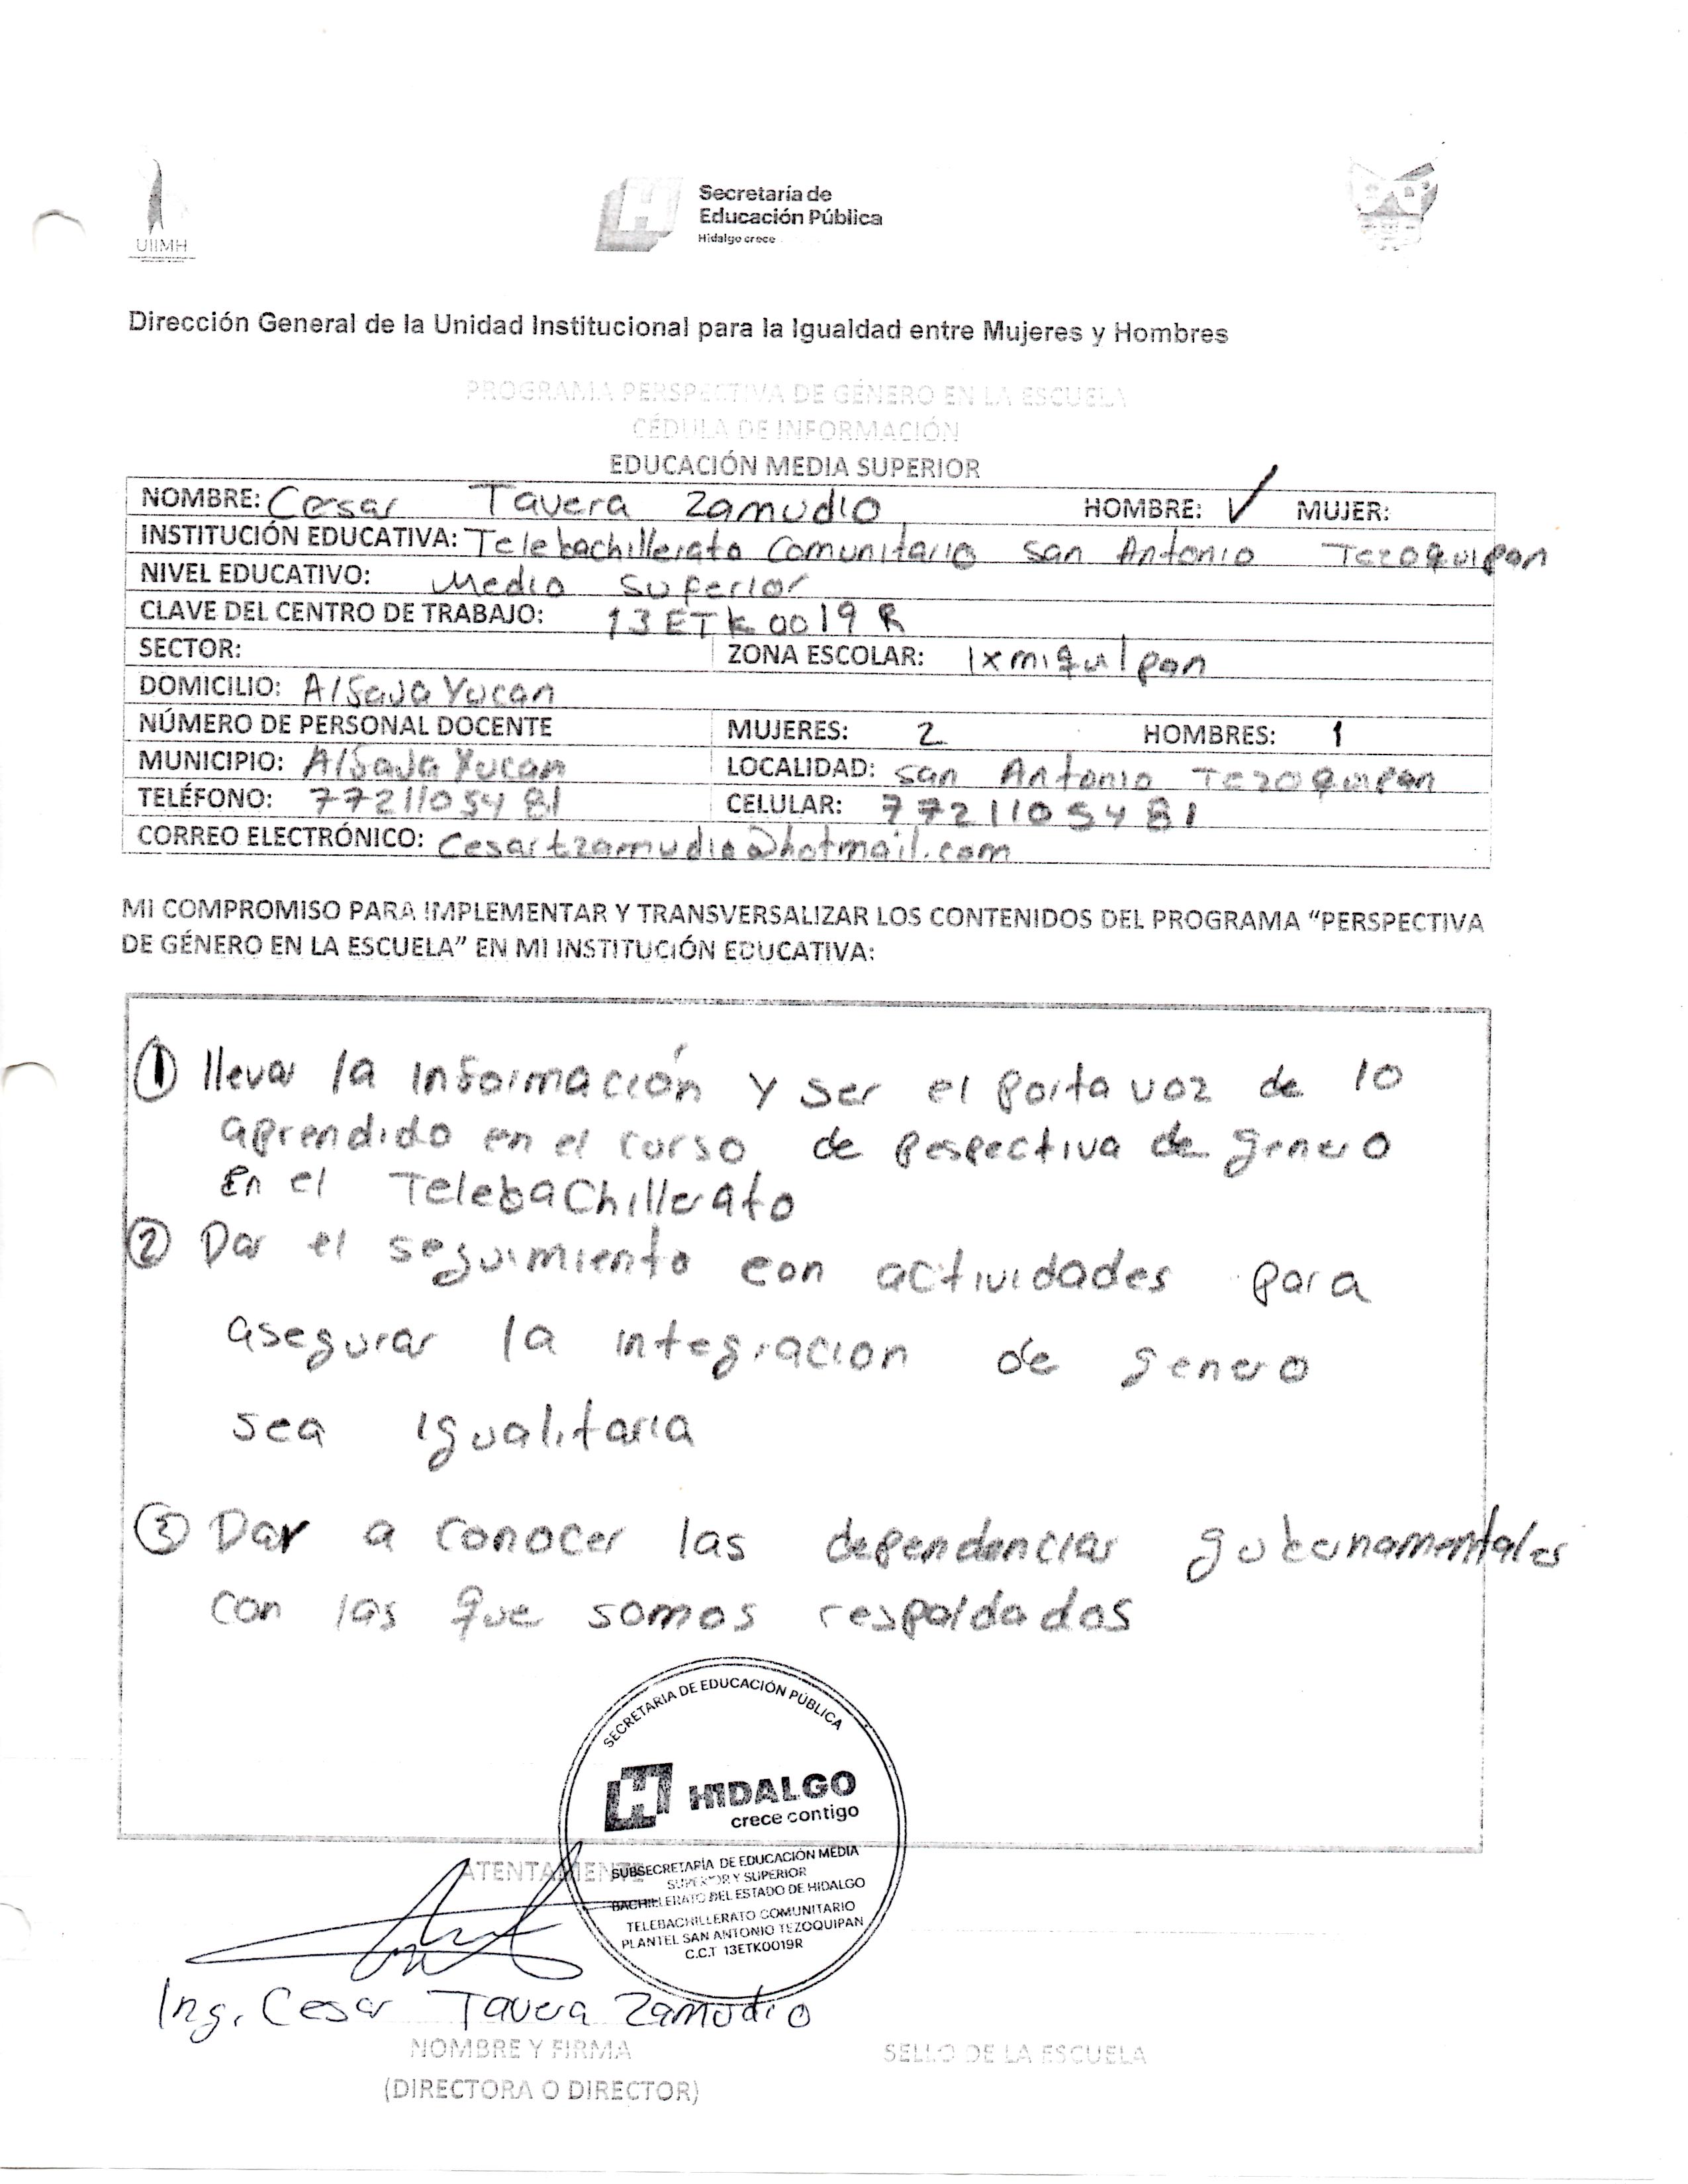 UIIMH
Secretaría de
Educación Pública
Hidalgo crece
Dirección General de la Unidad Institucional para la Igualdad entre Mujeres y Hombres
PROGRAMA PERSPECTIVA DE GÉNERO EN LA ESCUELA
CÉDULA DE INFORMACIÓN
EDUCACIÓN MEDIA SUPERIOR
NOMBRE: Cesar Tavera Zamudio HOMBRE: ✓ MUJER:
INSTITUCIÓN EDUCATIVA: Telebachillerato Comunitario San Antonio Tezoquipan
NIVEL EDUCATIVO: Medio Superior
CLAVE DEL CENTRO DE TRABAJO: 13ETK0019R
SECTOR: ZONA ESCOLAR: Ixmiquilpan
DOMICILIO: Alfajayucan
NÚMERO DE PERSONAL DOCENTE MUJERES: 2 HOMBRES: 1
MUNICIPIO: Alfajayucan LOCALIDAD: San Antonio Tezoquipan
TELÉFONO: 7721105481 CELULAR: 7721105481
CORREO ELECTRÓNICO: Cesartzamudio@hotmail.com
MI COMPROMISO PARA IMPLEMENTAR Y TRANSVERSALIZAR LOS CONTENIDOS DEL PROGRAMA “PERSPECTIVA
DE GÉNERO EN LA ESCUELA” EN MI INSTITUCIÓN EDUCATIVA:
① llevar la información y ser el porta voz de lo
aprendido en el curso de pespectiva de genero
En el TelebaChillerato
② Dar el seguimiento con actividades para
asegurar la integracion de genero
sea igualitaria
③ Dar a conocer las dependencias gubernamentales
con las que somos respaldados
SECRETARIA DE EDUCACIÓN PÚBLICA
HIDALGO
crece contigo
ATENTAMENTE
SUBSECRETARÍA DE EDUCACIÓN MEDIA
SUPERIOR Y SUPERIOR
BACHILLERATO DEL ESTADO DE HIDALGO
TELEBACHILLERATO COMUNITARIO
PLANTEL SAN ANTONIO TEZOQUIPAN
C.C.T 13ETK0019R
Ing. Cesar Tavera Zamudio
NOMBRE Y FIRMA SELLO DE LA ESCUELA
(DIRECTORA O DIRECTOR)